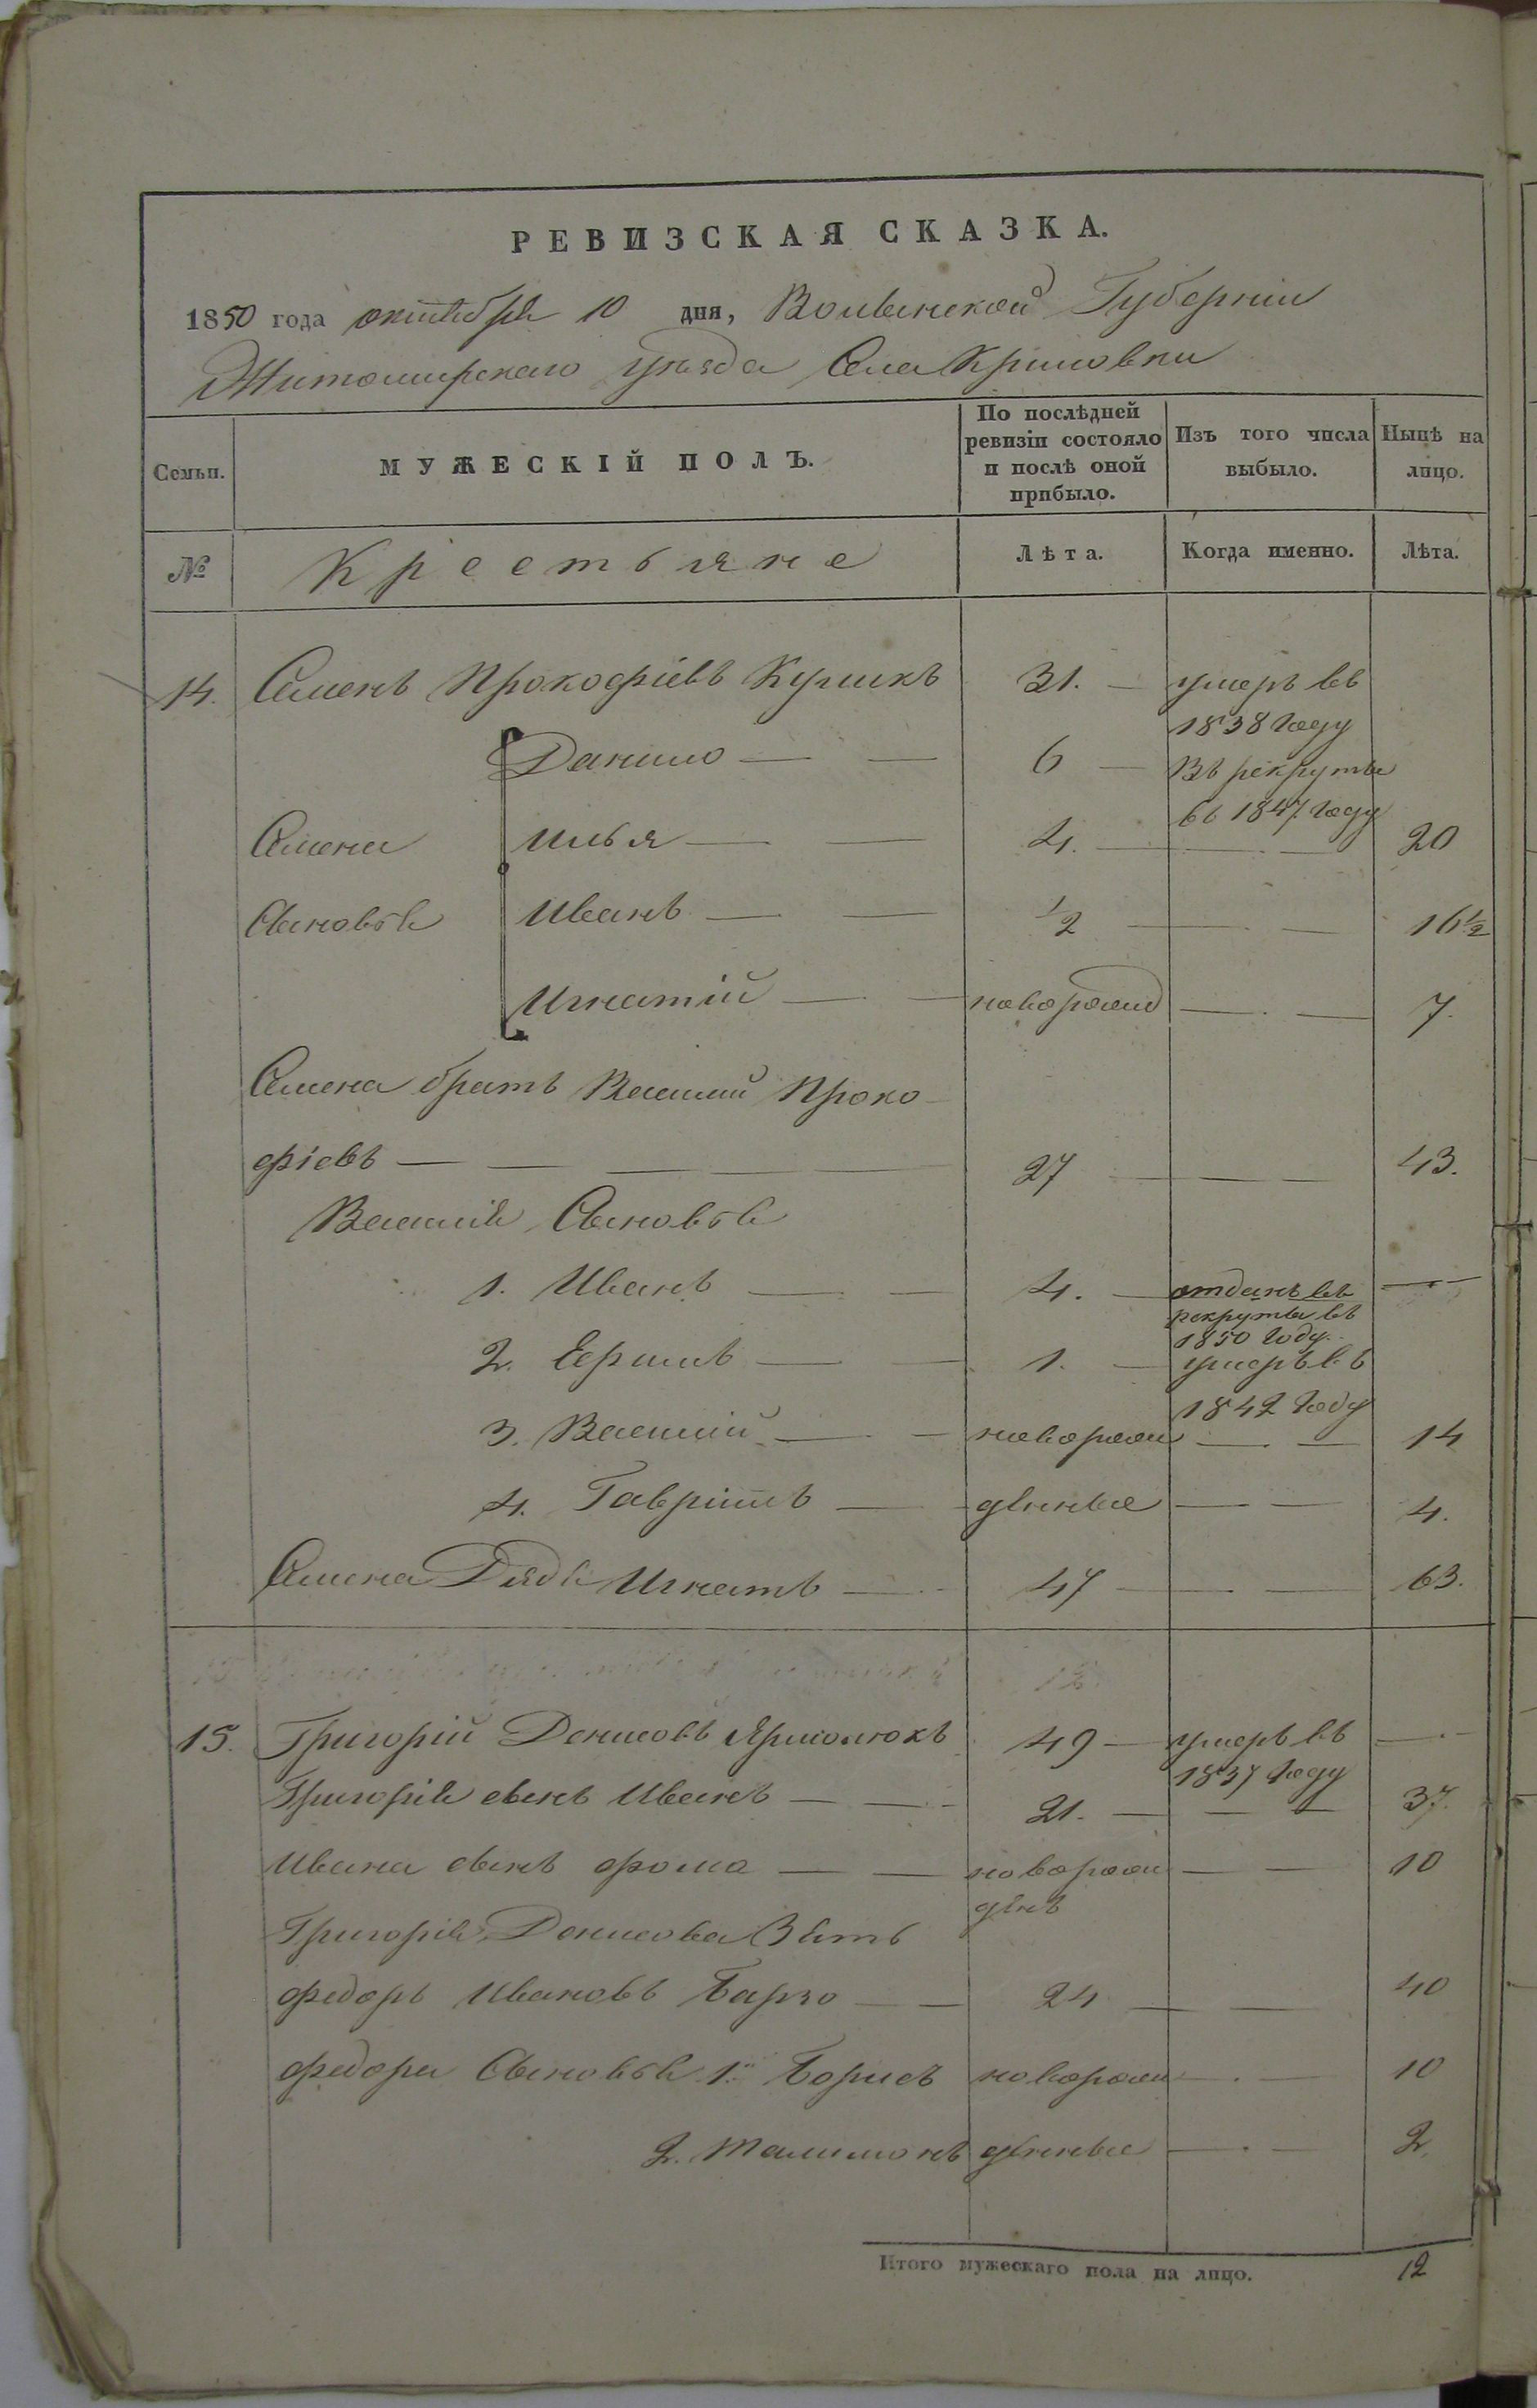 РЕВИЗСКАЯ СКАЗКА.
1850 года октября 10 дня, Волынской Губерніи
Житомирскаго уѣзда Села Крыловки
Семьи. МУЖЕСКІЙ ПОЛЪ. По послѣдней ревизіи состояло и послѣ оной прибыло. Изъ того числа выбыло. Нынѣ на лицо.
№ Крестьяне Лѣта. Когда именно. Лѣта.
14. Семенъ Прокофіевъ 31. — умеръ въ
1838 году
Данило — — 6 — Въ рекруты
въ 1847 году
Семена Илья — — 4. — — — 20
Сыновья Иванъ — — 1/2 — — — 16 1/2
Игнатій — — новорожд — — 7.
Семена братъ Василий Проко-
фіевъ — — — — — 27 — — — 43.
Василія Сыновья
1. Иванъ — — 4. — отданъ въ — —
рекруты въ
1850 году.
2. — — 1. — умеръ въ
1842 году
3. Василій — — новорож — — 14
4. Гавріилъ — денные — — 4.
Семена Дядя Игнатъ — 47 — — — 63.
15. Григорій Денисовъ Ярмолюкъ 49 — умеръ въ — —
1837 году
Григорія сынъ Иванъ — — 21. — — — 37.
Ивана сынъ Фома — — новорож — — 10
денъ
Григорія Денисова Зять
Федоръ Ивановъ Барзо — — 24 — — 40
Федора Сыновья 1. Борисъ новорож — — 10
2. Талимонъ денные — — 2.
Итого мужескаго пола на лицо. 12